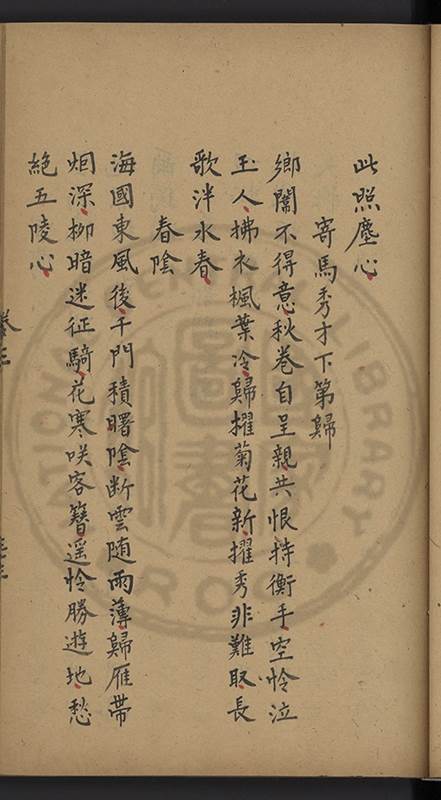 此照塵心
寄馬秀才下第歸
鄉關不得意秋卷自呈親共恨持衡手空怜泣
玉人拂衣楓葉冷歸擢菊花新擢秀非難取長
歌泮水春
春陰
海國東風後千門積曙陰断雲随雨薄歸雁帯
烟深栁暗迷征騎花寒咲客簪遥怜勝遊地愁
絶五陵心